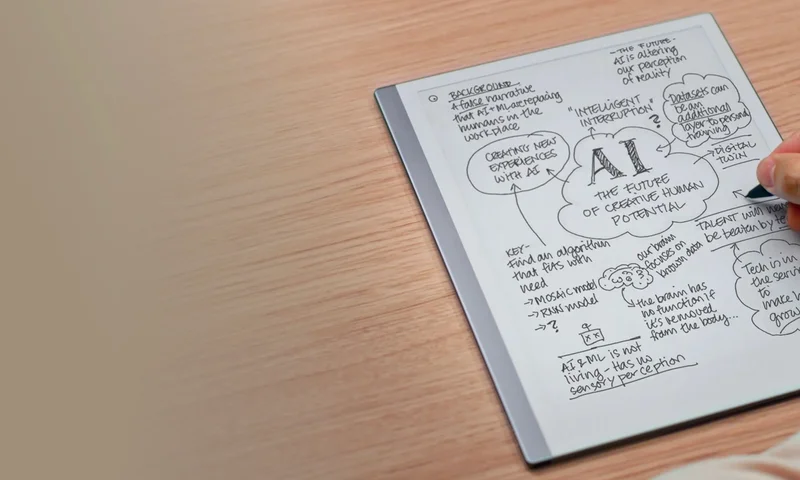 - THE FUTURE -
AI is altering
our perception
of reality
BACKGROUND
A false narrative
that AI + ML are replacing
humans in the
workplace
"INTELLIGENT
INTERRUPTION"
?
Datasets can
be an
additional
layer to personal
training
→ DIGITAL
TWIN
CREATING NEW
EXPERIENCES
WITH AI
AI
THE FUTURE
OF CREATIVE HUMAN
POTENTIAL
TALENT will
be beaten by
KEY -
Find an algorithm
that fits with
need
→ MOSAIC model
→ RNN model
→ ?
our brain
focuses on
known data
the brain has
no function if
it's removed
from the body...
Tech is in
the
to
make
grow
AI & ML is not
living - Has no
sensory perception